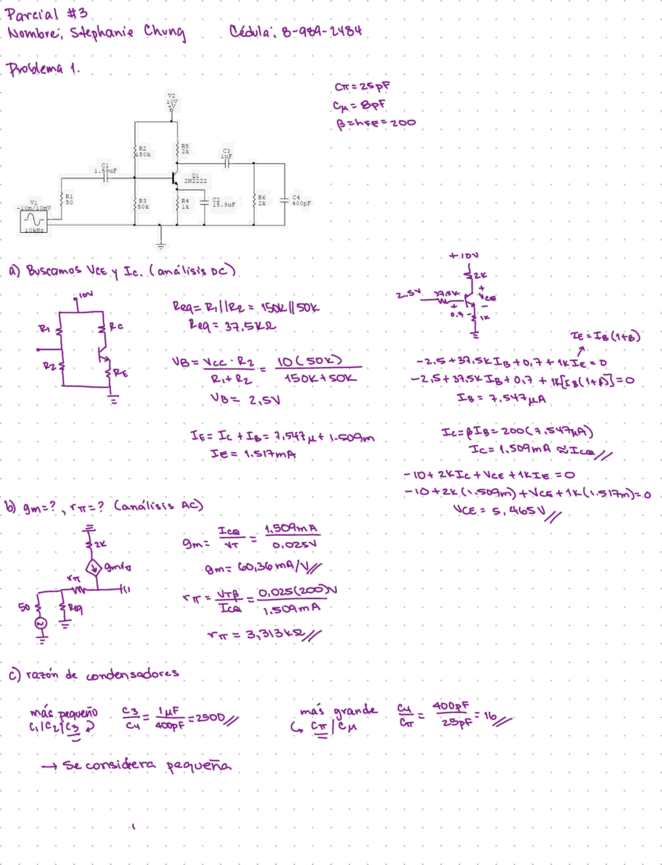 Parcial #3
Nombre: Stephanie Chung Cédula: 8-989-2484
Problema 1.
Cπ = 25pF
Cμ = 8pF
β = hFE = 200
V2
10V
R2
150k
R5
2k
C3
1uF
C1
Q1
2N2222
R1
50
V1
-10m/10mV
10kHz
R3
50k
R4
1k
C2
R6
2k
C4
400pF
a) Buscamos VCE y Ic. (análisis DC)
10V
R1
RC
R2
RE
Req = R1||R2 = 150k||50K
Req = 37,5kΩ
VB = Vcc · R2 / R1 + R2 = 10(50k) / 150k + 50k
VB = 2,5V
IE = Ic + IB = 7,547μ + 1.509m
Ie = 1.517mA
+10V
2K
2.5V 37,5K
+
VCE
-
1K
IE = IB(1+β)
-2,5 + 37,5k IB + 0,7 + 1k IE = 0
-2,5 + 37,5k IB + 0,7 + 1k[IB(1+β)] = 0
IB = 7,547μA
Ic = βIB = 200(7.547μA)
Ic = 1.509mA ≈ ICQ //
-10 + 2k Ic + VCE + 1k IE = 0
-10 + 2k(1.509m) + VCE + 1k(1.517m) = 0
VCE = 5,465V //
b) gm = ?, rπ = ? (análisis AC)
2K
rπ
50
Req
gm = ICQ / VT = 1.509mA / 0.025V
gm = 60,36 mA/V //
rπ = VTβ / ICQ = 0,025(200)V / 1.509mA
rπ = 3,313kΩ //
c) razón de condensadores
más pequeño
C1|C2|C3
C3 / C4 = 1μF / 400pF = 2500 //
más grande
Cπ | Cμ
C4 / Cπ = 400pF / 25pF = 16 //
→ Se considera pequeña